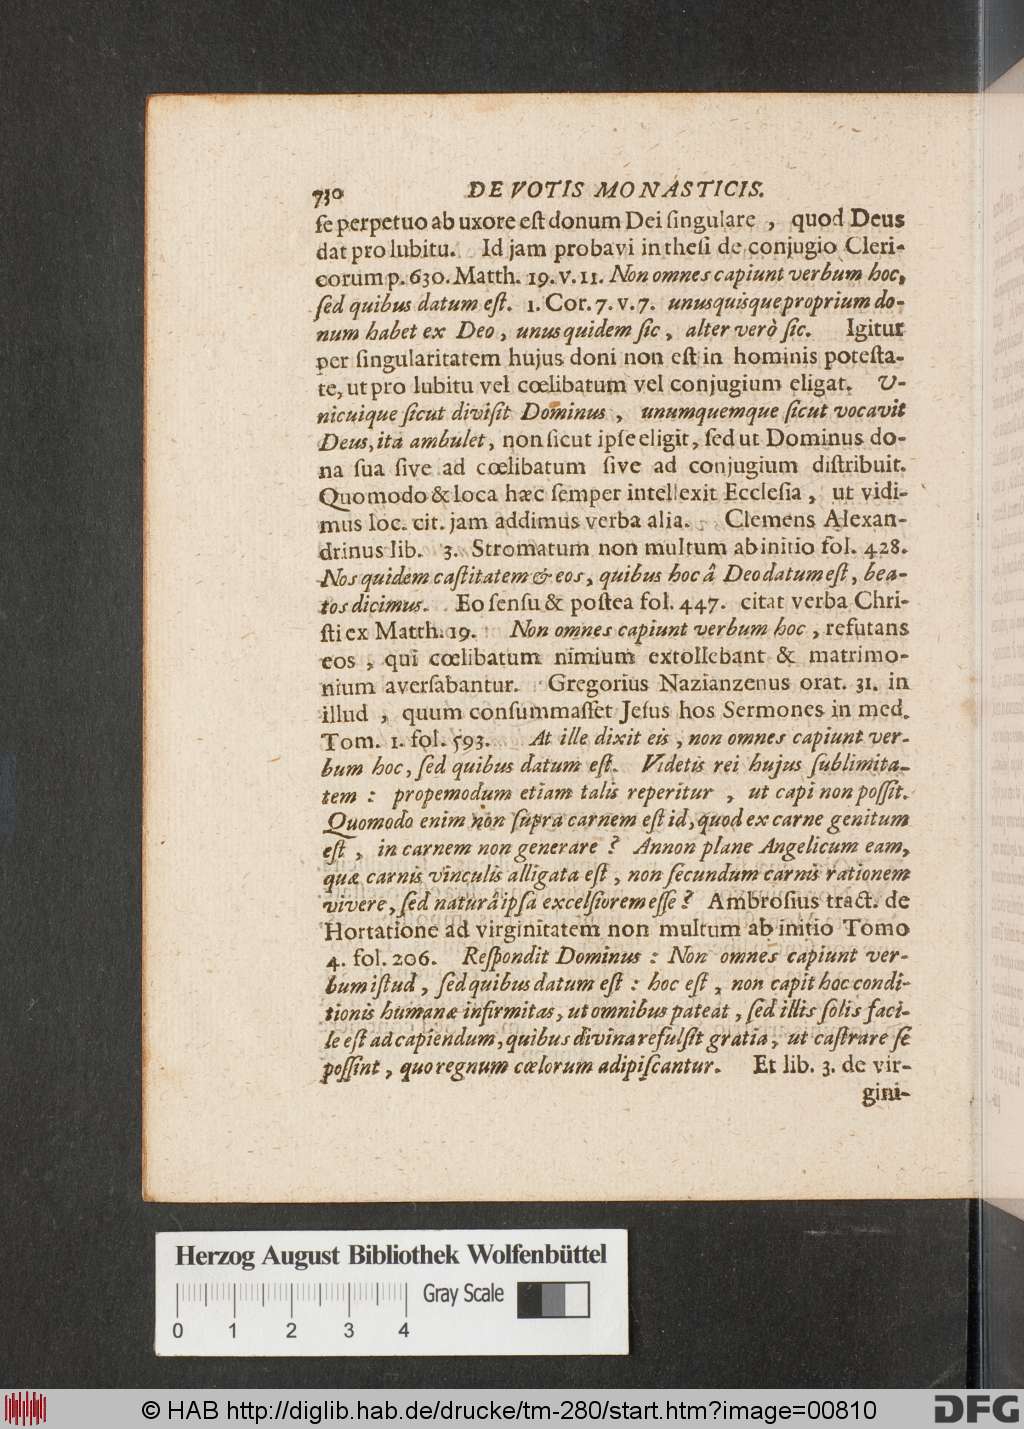 730 DE VOTIS MONASTICIS.
ſe perpetuo ab uxore eſt donum Dei ſingulare, quod Deus
dat pro lubitu. Id jam probavi in theſi de conjugio Cleri-
corum p. 630. Matth. 19. v. 11. Non omnes capiunt verbum hoc,
ſed quibus datum eſt. 1. Cor. 7. v. 7. unusquisque proprium do-
num habet ex Deo, unus quidem ſic, alter verò ſic. Igitur
per ſingularitatem hujus doni non eſt in hominis poteſta-
te, ut pro lubitu vel cœlibatum vel conjugium eligat. V-
nicuique ſicut diviſit Dominus, unumquemque ſicut vocavit
Deus, ita ambulet, non ſicut ipſe eligit, ſed ut Dominus do-
na ſua ſive ad cœlibatum ſive ad conjugium diſtribuit.
Quomodo & loca hæc ſemper intellexit Eccleſia, ut vidi-
mus loc. cit. jam addimus verba alia. Clemens Alexan-
drinus lib. 3. Stromatum non multum ab initio fol. 428.
Nos quidem caſtitatem & eos, quibus hoc â Deo datum eſt, bea-
tos dicimus. Eo ſenſu & poſtea fol. 447. citat verba Chri-
ſti ex Matth. 19. Non omnes capiunt verbum hoc, refutans
eos, qui cœlibatum nimium extollebant & matrimo-
nium averſabantur. Gregorius Nazianzenus orat. 31. in
illud, quum conſummaſſet Jeſus hos Sermones in med.
Tom. 1. fol. 593. At ille dixit eis, non omnes capiunt ver-
bum hoc, ſed quibus datum eſt. Videtis rei hujus ſublimita-
tem: propemodum etiam talis reperitur, ut capi non poſſit.
Quomodo enim non ſupra carnem eſt id, quod ex carne genitum
eſt, in carnem non generare? Annon plane Angelicum eam,
quæ carnis vinculis alligata eſt, non ſecundum carnis rationem
vivere, ſed naturâ ipſa excelſiorem eſſe? Ambroſius tract. de
Hortatione ad virginitatem non multum ab initio Tomo
4. fol. 206. Reſpondit Dominus: Non omnes capiunt ver-
bum iſtud, ſed quibus datum eſt: hoc eſt, non capit hoc condi-
tionis humanæ infirmitas, ut omnibus pateat, ſed illis ſolis faci-
le eſt ad capiendum, quibus divina refulſit gratia, ut caſtrare ſe
poſſint, quo regnum cœlorum adipiſcantur. Et lib. 3. de vir-
gini-
Herzog August Bibliothek Wolfenbüttel
Gray Scale
0 1 2 3 4
© HAB http://diglib.hab.de/drucke/tm-280/start.htm?image=00810
DFG